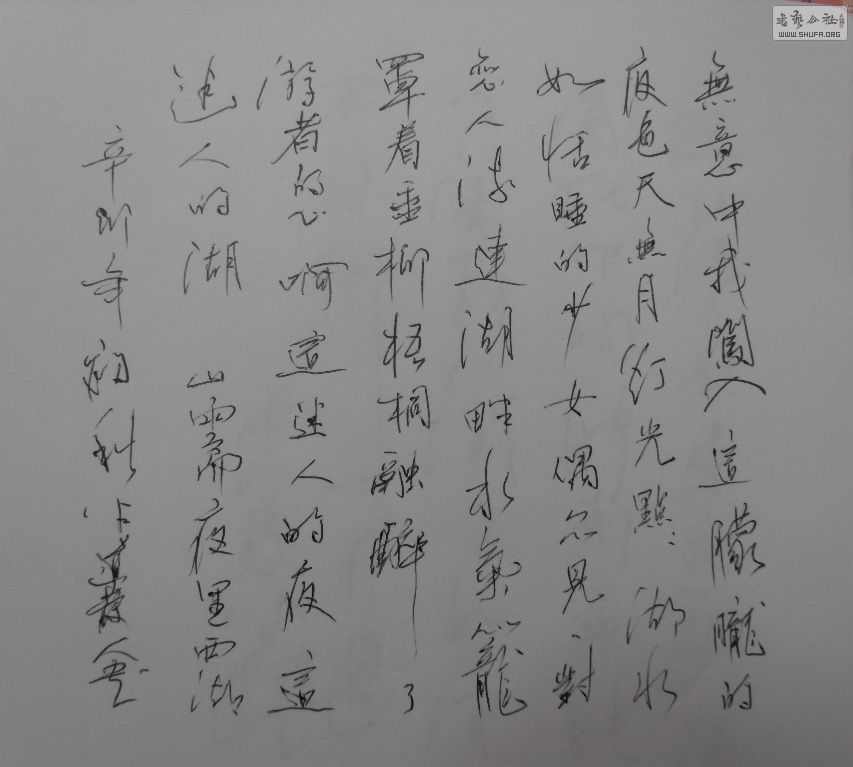 書藝公社
WWW.SHUFA.ORG
無意中我闖入這朦朧的
夜色天無月灯光點々湖水
如恬睡的少女偶尔見一對
恋人流連湖畔水氣籠
罩着垂柳梧桐融醉了
游者的心啊這迷人的夜這
迷人的湖 山雨 夜里西湖
辛卯年初秋